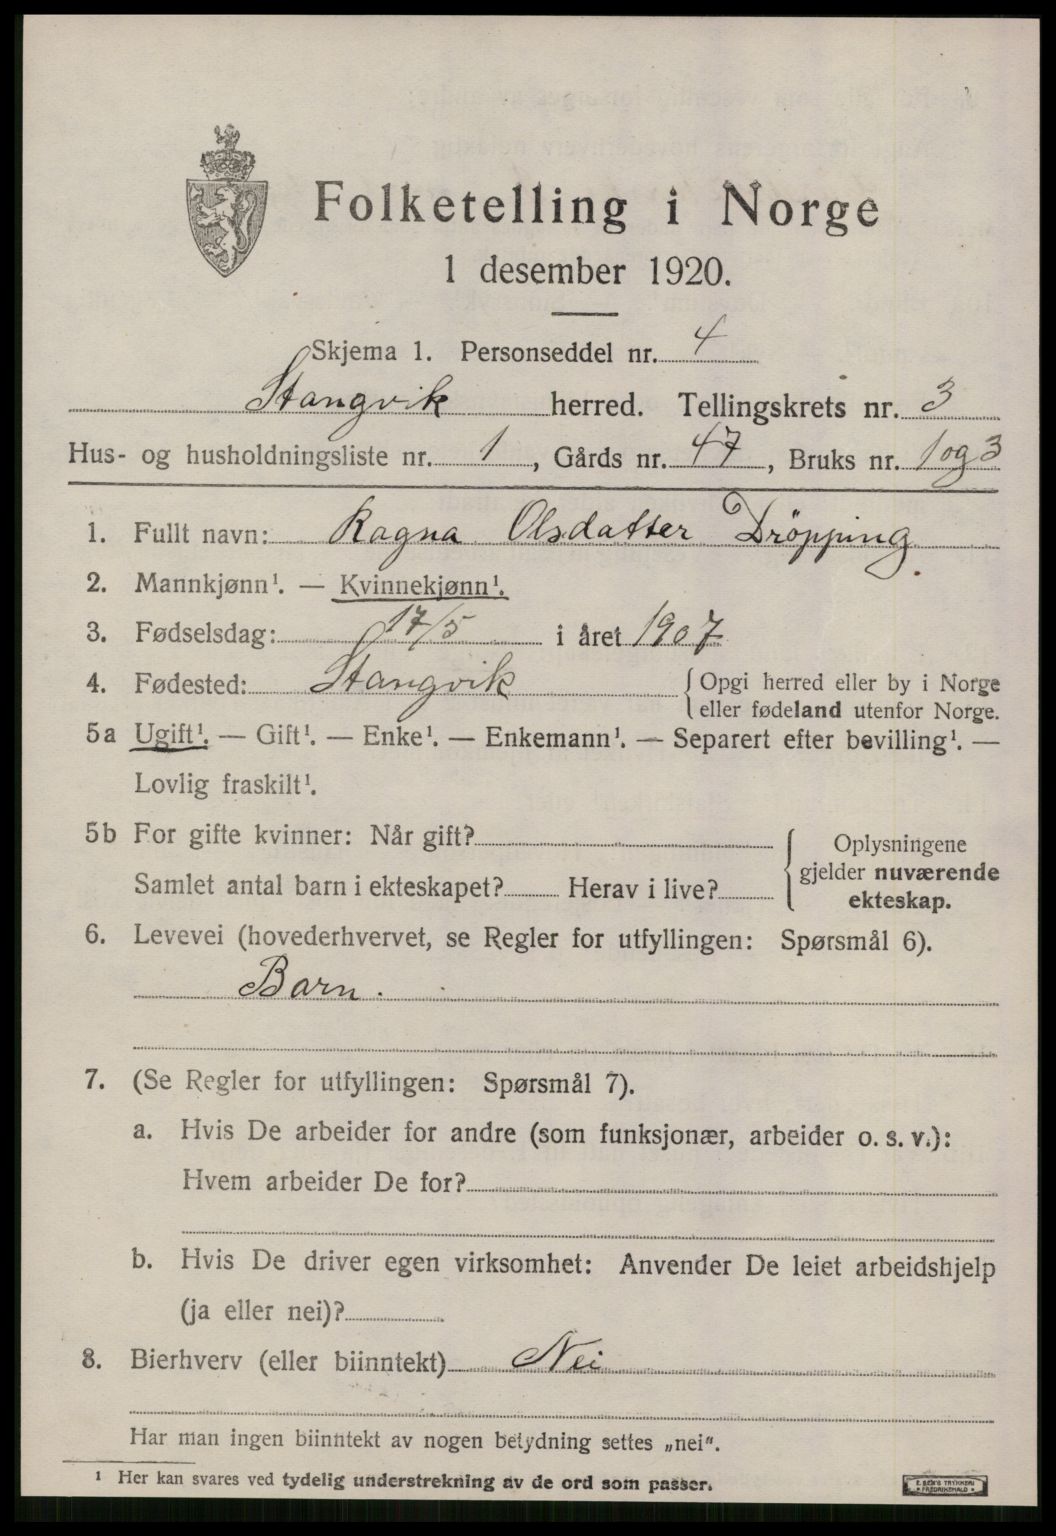 Folketelling i Norge
1 desember 1920.
Skjema 1. Personseddel nr. 4
Stangvik herred. Tellingskrets nr. 3
Hus- og husholdningsliste nr. 1, Gårds nr. 47, Bruks nr. 1og3
1. Fullt navn: Ragna Olsdatter Dröpping
2. Mannkjønn¹. — Kvinnekjønn¹.
3. Fødselsdag: 17/5 i året 1907
4. Fødested: Stangvik { Opgi herred eller by i Norge
eller fødeland utenfor Norge.
5a Ugift¹. — Gift¹. — Enke¹. — Enkemann¹. — Separert efter bevilling¹. —
Lovlig fraskilt¹.
5b For gifte kvinner: Når gift?
Samlet antal barn i ekteskapet? Herav i live?
Oplysningene
gjelder nuværende
ekteskap.
6. Levevei (hovederhvervet, se Regler for utfyllingen: Spørsmål 6).
Barn.
7. (Se Regler for utfyllingen: Spørsmål 7).
a. Hvis De arbeider for andre (som funksjonær, arbeider o. s. v.):
Hvem arbeider De for?
b. Hvis De driver egen virksomhet: Anvender De leiet arbeidshjelp
(ja eller nei)?
8. Bierhverv (eller biinntekt) Nei
Har man ingen biinntekt av nogen betydning settes „nei".
¹ Her kan svares ved tydelig understrekning av de ord som passer.
E. SEM'S TRYKKERI
FREDRIKSHALD